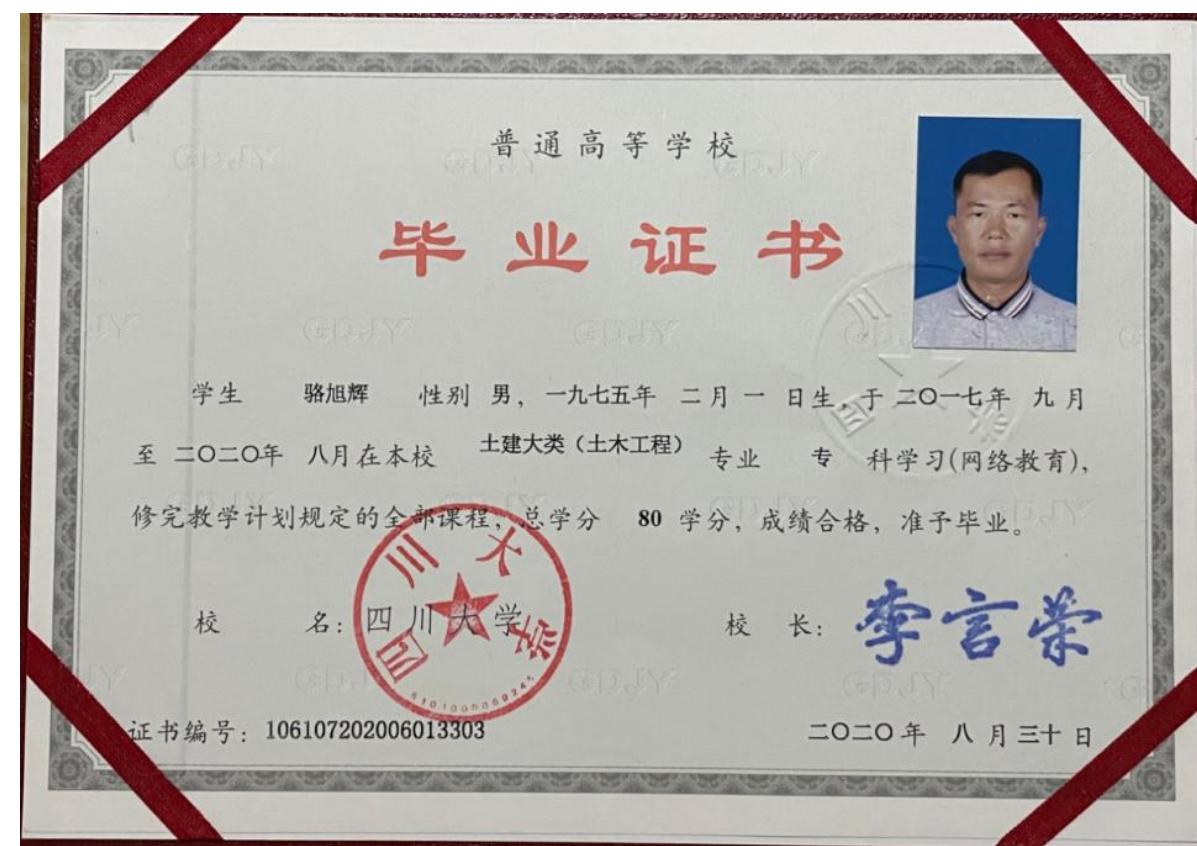 普通高等学校
毕业证书
学生 骆旭辉 性别 男，一九七五年 二月 一 日生，于 二〇一七年 九月
至 二〇二〇年 八月在本校 土建大类（土木工程） 专业 专 科学习(网络教育)，
修完教学计划规定的全部课程，总学分 80 学分，成绩合格，准予毕业。
校 名：四川大学 校 长：李言荣
四川大学
5101005069245
证书编号：106107202006013303 二〇二〇年 八月三十日